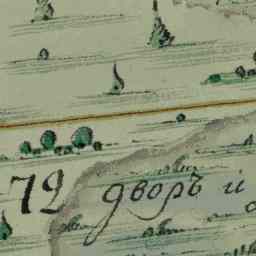 72 дворъ и